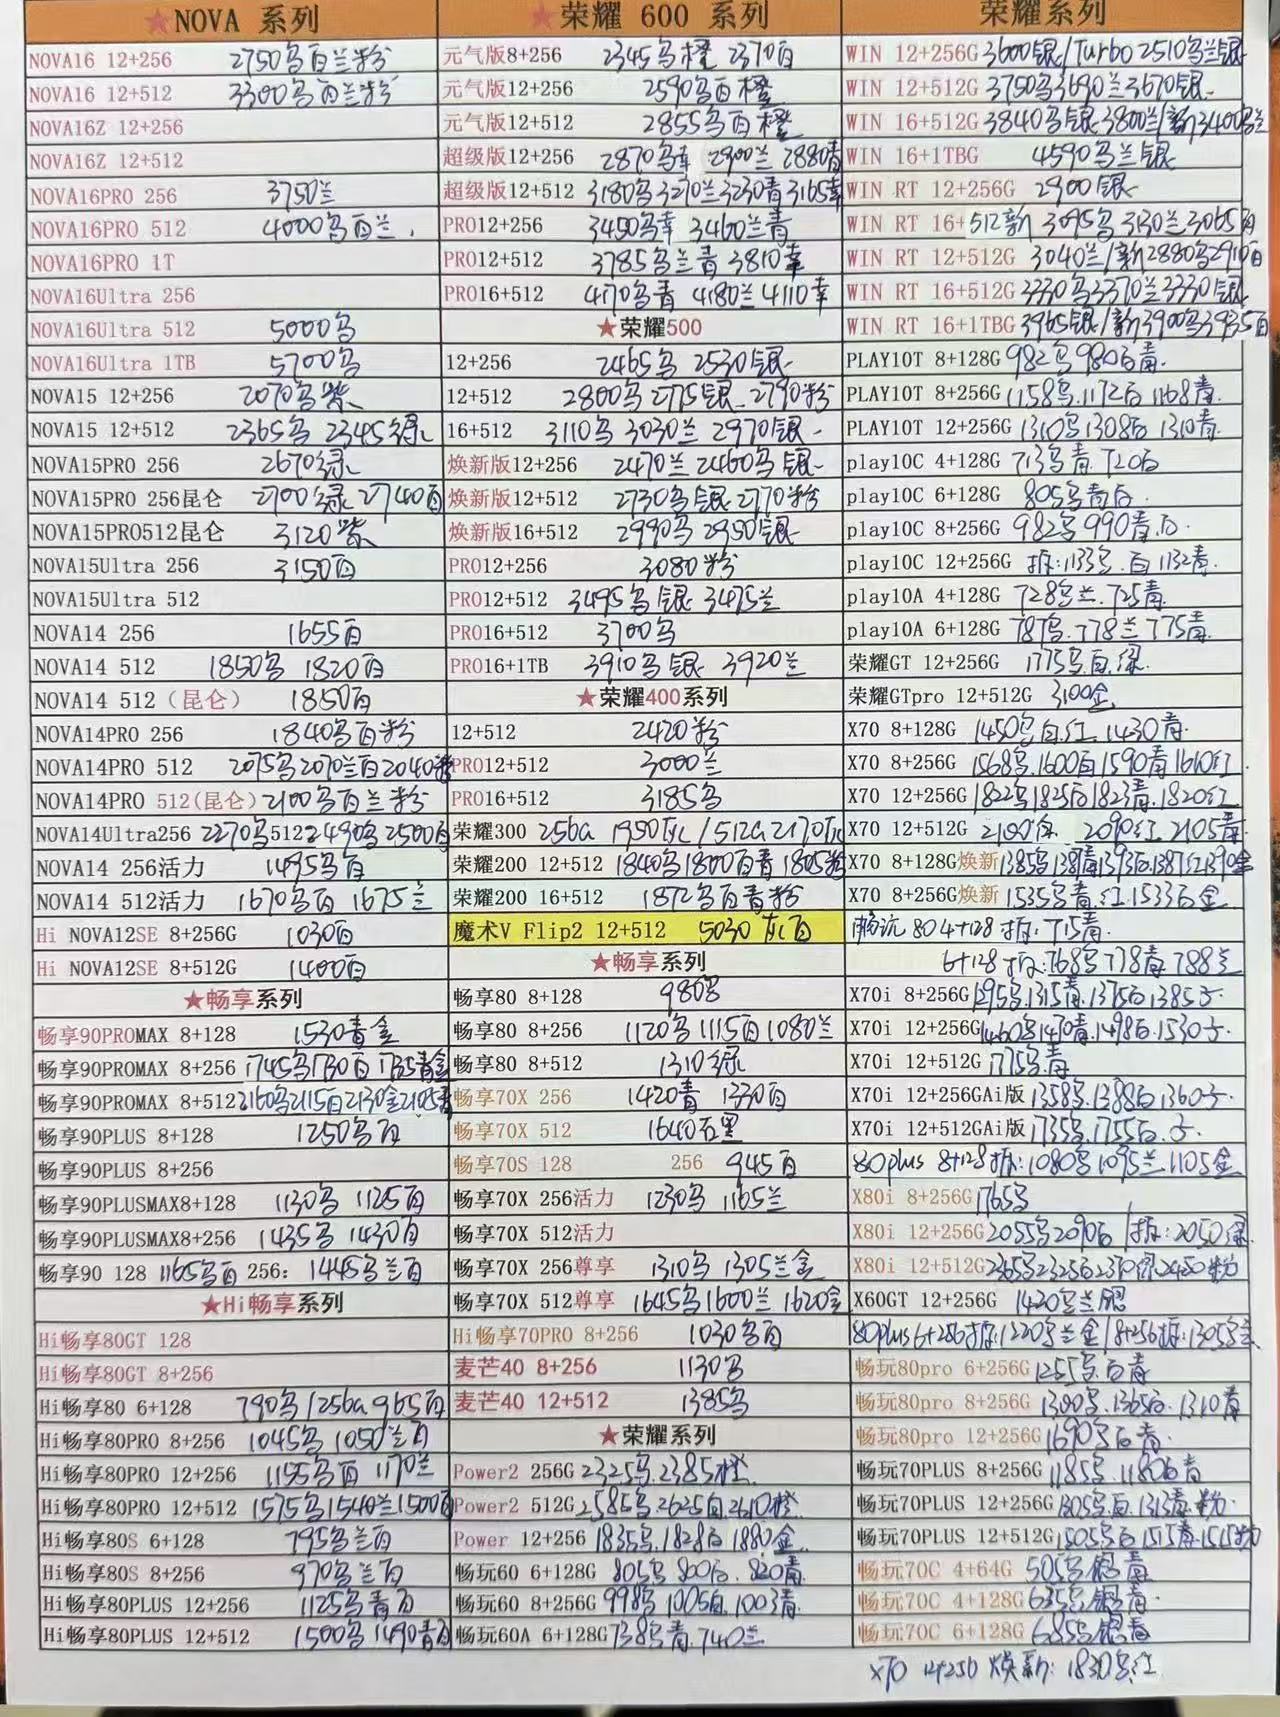 ★NOVA 系列
NOVA16 12+256 2750乌白兰粉
NOVA16 12+512 3300乌白兰粉
NOVA16Z 12+256
NOVA16Z 12+512
NOVA16PRO 256 3750兰
NOVA16PRO 512 4000乌白兰.
NOVA16PRO 1T
NOVA16Ultra 256
NOVA16Ultra 512 5000乌
NOVA16Ultra 1TB 5700乌
NOVA15 12+256 2070乌紫
NOVA15 12+512 2365乌 2345绿
NOVA15PRO 256 2670绿
NOVA15PRO 256昆仑 2700绿 2740白
NOVA15PRO512昆仑 3120紫
NOVA15Ultra 256 3150白
NOVA15Ultra 512
NOVA14 256 1655白
NOVA14 512 1850乌 1820白
NOVA14 512（昆仑） 1850白
NOVA14PRO 256 1840乌白粉
NOVA14PRO 512 2075乌2070兰白2040粉
NOVA14PRO 512(昆仑) 2100乌白兰粉
NOVA14Ultra256 2270乌512 2490乌2500白
NOVA14 256活力 1495乌白
NOVA14 512活力 1670乌白 1675兰
Hi NOVA12SE 8+256G 1030白
Hi NOVA12SE 8+512G 1400白
★畅享系列
畅享90PROMAX 8+128 1530青金
畅享90PROMAX 8+256 1745乌1730白1735青金
畅享90PROMAX 8+512 2160乌2115白2130金2105青
畅享90PLUS 8+128 1250乌白
畅享90PLUS 8+256
畅享90PLUSMAX8+128 1130乌 1125白
畅享90PLUSMAX8+256 1435乌 1430白
畅享90 128 1165乌白 256: 1445乌兰白
★Hi畅享系列
Hi畅享80GT 128
Hi畅享80GT 8+256
Hi畅享80 6+128 790乌/256G 965白
Hi畅享80PRO 8+256 1045乌 1050兰白
Hi畅享80PRO 12+256 1155乌白 1170兰
Hi畅享80PRO 12+512 1575乌1540兰1500白
Hi畅享80S 6+128 795乌兰白
Hi畅享80S 8+256 970乌兰白
Hi畅享80PLUS 12+256 1125乌青白
Hi畅享80PLUS 12+512 1500乌1490青白
★荣耀 600 系列
元气版8+256 2345乌橙 2370白
元气版12+256 2590乌白橙
元气版12+512 2855乌白橙
超级版12+256 2870乌幸 2900兰 2880青
超级版12+512 3180乌3270兰3230青3165幸
PRO12+256 3450乌幸 3460兰青
PRO12+512 3785乌兰青 3810幸
PRO16+512 4170乌青 4180兰4110幸
★荣耀500
12+256 2465乌 2530银
12+512 2800乌2775银 2790粉
16+512 3110乌 3030兰 2970银
焕新版12+256 2470兰 2460乌银
焕新版12+512 2730乌银2770粉
焕新版16+512 2990乌2950银
PRO12+256 3080粉
PRO12+512 3495乌银 3475兰
PRO16+512 3700乌
PRO16+1TB 3910乌银 3920兰
★荣耀400系列
12+512 2420粉
PRO12+512 3000兰
PRO16+512 3185乌
荣耀300 256G 1950灰/512G2170灰
荣耀200 12+512 1840乌1800白青 1805粉
荣耀200 16+512 1872乌白青粉
魔术V Flip2 12+512 5030灰白
★畅享系列
畅享80 8+128 980乌
畅享80 8+256 1120乌1115白1080兰
畅享80 8+512 1310绿
畅享70X 256 1420青 1330白
畅享70X 512 1640白黑
畅享70S 128 256 945白
畅享70X 256活力 1230乌 1165兰
畅享70X 512活力
畅享70X 256尊享 1310乌 1305兰金
畅享70X 512尊享 1645乌1600兰1620金
Hi畅享70PRO 8+256 1030乌白
麦芒40 8+256 1130乌
麦芒40 12+512 1385乌
★荣耀系列
Power2 256G 2325乌.2385橙
Power2 512G 2585乌.2625白.2610橙
Power 12+256 1835乌.1828白 1880金
畅玩60 6+128G 805乌 800白 820青
畅玩60 8+256G 998乌 1005白.1003青
畅玩60A 6+128G 738乌青.740兰
荣耀系列
WIN 12+256G 3600银/Turbo 2510乌兰银
WIN 12+512G 3750乌3690兰3670银
WIN 16+512G 3840乌银3800兰/新3400乌兰
WIN 16+1TBG 4590乌兰银
WIN RT 12+256G 2900银
WIN RT 16+512新 3095乌 3130兰3065白
WIN RT 12+512G 3040兰/新2880乌2910白
WIN RT 16+512G 3330乌3370兰3330银
WIN RT 16+1TBG 3965银/新3900乌3935白
PLAY10T 8+128G 982乌 980白青.
PLAY10T 8+256G 1158乌.1172白 1168青.
PLAY10T 12+256G 1310乌1308白 1310青.
play10C 4+128G 713乌青 720白
play10C 6+128G 805乌青白
play10C 8+256G 982乌 990青.白
play10C 12+256G 拆:1133乌.白 1132青.
play10A 4+128G 728乌兰.725青
play10A 6+128G 787乌.778兰 775青
荣耀GT 12+256G 1775乌.白.绿.
荣耀GTpro 12+512G 3100金
X70 8+128G 1450乌.白.红.1430青.
X70 8+256G 1568乌.1600白1590青1610红
X70 12+256G 1822乌1825白1823青.1820红
X70 12+512G 2100白 2090红 2105青
X70 8+128G焕新 1385乌1389青1393白1387红1390金
X70 8+256G焕新 1535乌青.红.1533白金
畅玩80 4+128 拆:715青.
6+128 拆:768乌778青788兰
X70i 8+256G 1295乌.1315青.1375白1385子.
X70i 12+256G 1460乌1470青.1498白.1530子.
X70i 12+512G 1775乌青
X70i 12+256GAi版 1358乌.1388白1360子.
X70i 12+512GAi版 1735乌.1755白.子.
80plus 8+128拆:1080乌1095兰1105金
X80i 8+256G 1765乌
X80i 12+256G 2055乌2090白/拆:2050绿
X80i 12+512G
X60GT 12+256G 1420乌兰
80plus6+256拆:1220乌兰金/8+256拆:1305乌
畅玩80pro 6+256G 1255乌白青
畅玩80pro 8+256G 1300乌.1365白.1310青
畅玩80pro 12+256G 1690乌白青.
畅玩70PLUS 8+256G 1185乌.1180白青
畅玩70PLUS 12+256G 1305乌.白.1313青.粉.
畅玩70PLUS 12+512G 1505乌白1515青.1515粉
畅玩70C 4+64G 505乌银青
畅玩70C 4+128G 635乌银青.
畅玩70C 6+128G 685乌银青
X70 12+256 焕新: 1830乌红